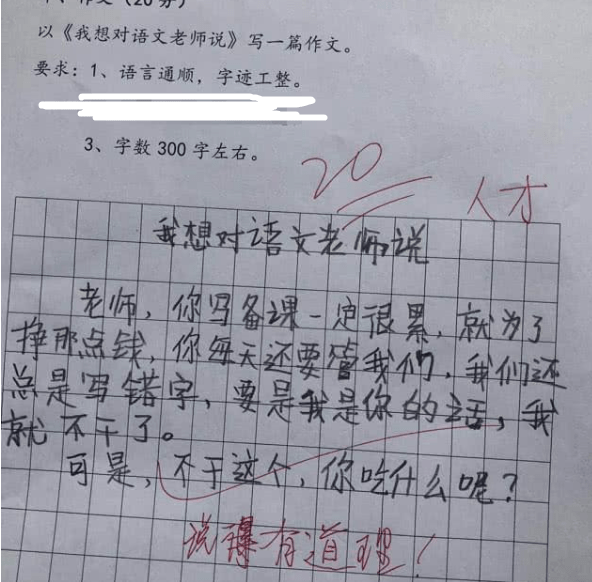 作文（20分）
以《我想对语文老师说》写一篇作文。
要求：1、语言通顺，字迹工整。
3、字数300字左右。
20
人才
我想对语文老师说
老师，你写备课一定很累，就为了
挣那点钱，你每天还要管我们，我们还
总是写错字，要是我是你的话，我
就不干了。
可是，不干这个，你吃什么呢？
说得有道理！